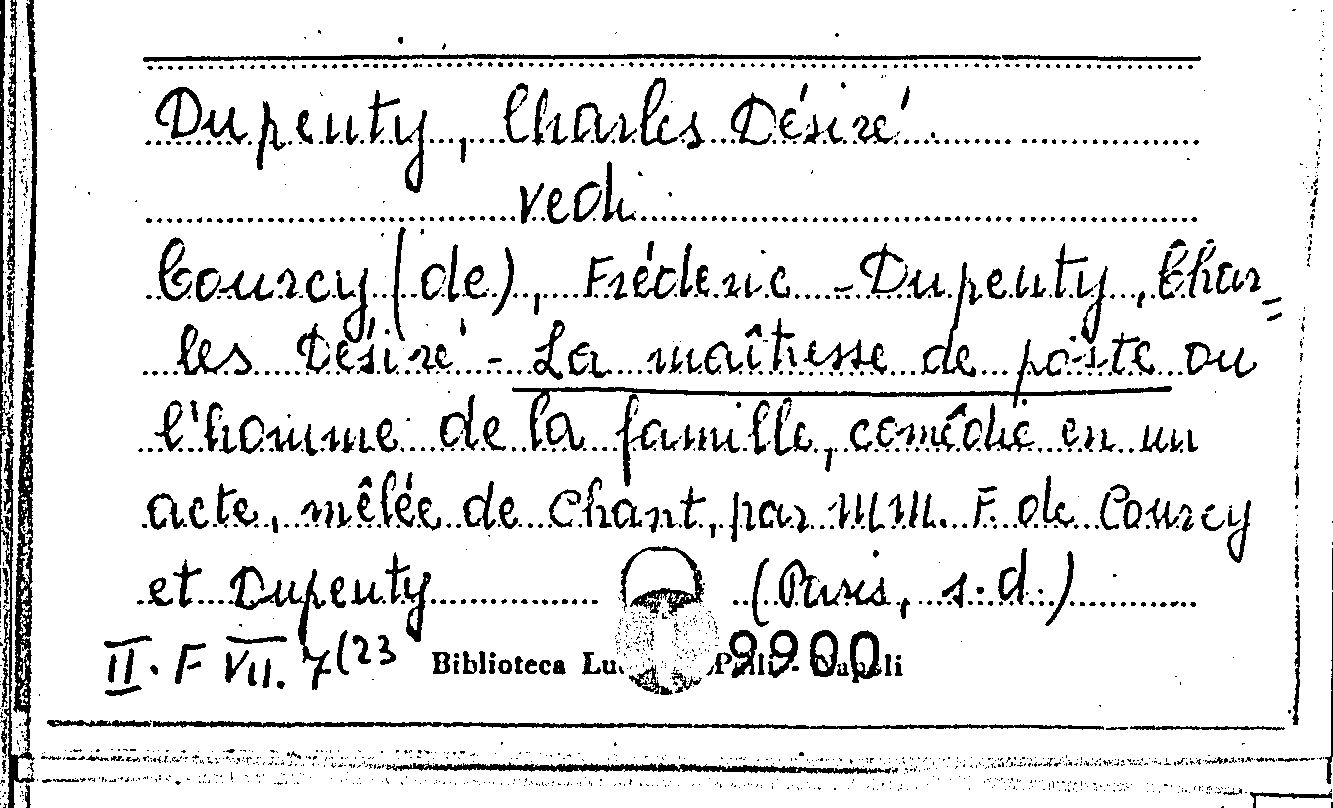 Dupeuty, Charles Désiré.
vedi
Courcy (de), Fréderic - Dupeuty, Char=
les Désiré - La maîtresse de poste ou
l'homme de la famille, comédie en un
acte, mêlée de chant, par MM. F. de Courcy
et Dupeuty (Paris, s.d.)
II. F VII. 7(23 Biblioteca 9900